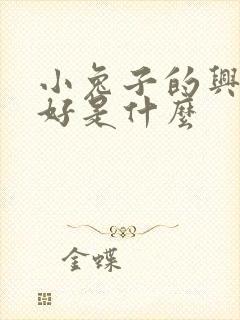 小兔子的興
好是什麼
金蝶